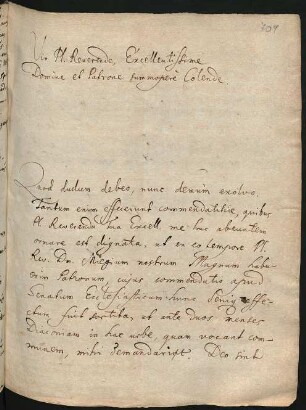 309
Vir Pl. Reverende, Excellentissime
Domine et Patrone summopere Colende.
Quod dudum debeo, nunc demum exolvo,
Tantum enim effecerunt commendatitiae, quibus
Pl. Reverenda Tua Excell. me huc abeuntem
ornare est dignata, ut ex eo tempore Pl.
Rev. Dn. nostrum Magnum habu-
erim Patronum, cujus commendatio apud
Senatum Ecclesiasticum hunc effe-
ctum fuit sortita, ut ante duos menses
Diaconiam in hac urbe, quam vocant com-
munem, mihi demandarint. Deo sint